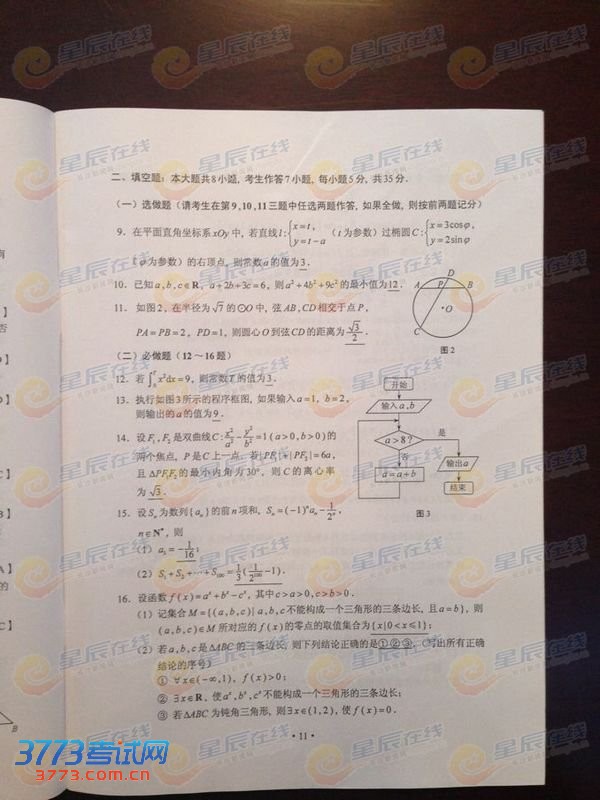 二、填空题：本大题共8小题，考生作答7小题，每小题5分，共35分．
（一）选做题（请考生在第9,10,11三题中任选两题作答，如果全做，则按前两题记分）
9．在平面直角坐标系xOy中，若直线l:{x=t, y=t-a （t为参数）过椭圆C:{x=3cosφ, y=2sinφ
（φ为参数）的右顶点，则常数a的值为3．
10．已知a,b,c∈R，a+2b+3c=6，则a²+4b²+9c²的最小值为12．
11．如图2，在半径为√7的⊙O中，弦AB,CD相交于点P，
PA=PB=2，PD=1，则圆心O到弦CD的距离为√3/2．
D
A P B
O
C
图2
（二）必做题（12～16题）
12．若∫₀ᵀx²dx=9，则常数T的值为3．
13．执行如图3所示的程序框图，如果输入a=1, b=2，
则输出的a的值为9．
14．设F₁,F₂是双曲线C:x²/a²-y²/b²=1(a>0,b>0)的
两个焦点，P是C上一点．若|PF₁|+|PF₂|=6a，
且△PF₁F₂的最小内角为30°，则C的离心率
为√3．
开始
输入a,b
a>8?
是
否
a=a+b
输出a
结束
图3
15．设Sₙ为数列{aₙ}的前n项和，Sₙ=(-1)ⁿaₙ-1/2ⁿ，
n∈N*，则
（1）a₃=-1/16；
（2）S₁+S₂+⋯+S₁₀₀=1/3(1/2¹⁰⁰-1)．
16．设函数f(x)=aˣ+bˣ-cˣ，其中c>a>0,c>b>0．
（1）记集合M={(a,b,c)|a,b,c不能构成一个三角形的三条边长，且a=b}，则
(a,b,c)∈M所对应的f(x)的零点的取值集合为{x|0<x≤1}；
（2）若a,b,c是△ABC的三条边长，则下列结论正确的是①②③．（写出所有正确
结论的序号）
① ∀x∈(-∞,1)，f(x)>0；
② ∃x∈R，使aˣ,bˣ,cˣ不能构成一个三角形的三条边长；
③ 若△ABC为钝角三角形，则∃x∈(1,2)，使f(x)=0．
·11·
B
3773考试网
3773.com.cn
星辰在线